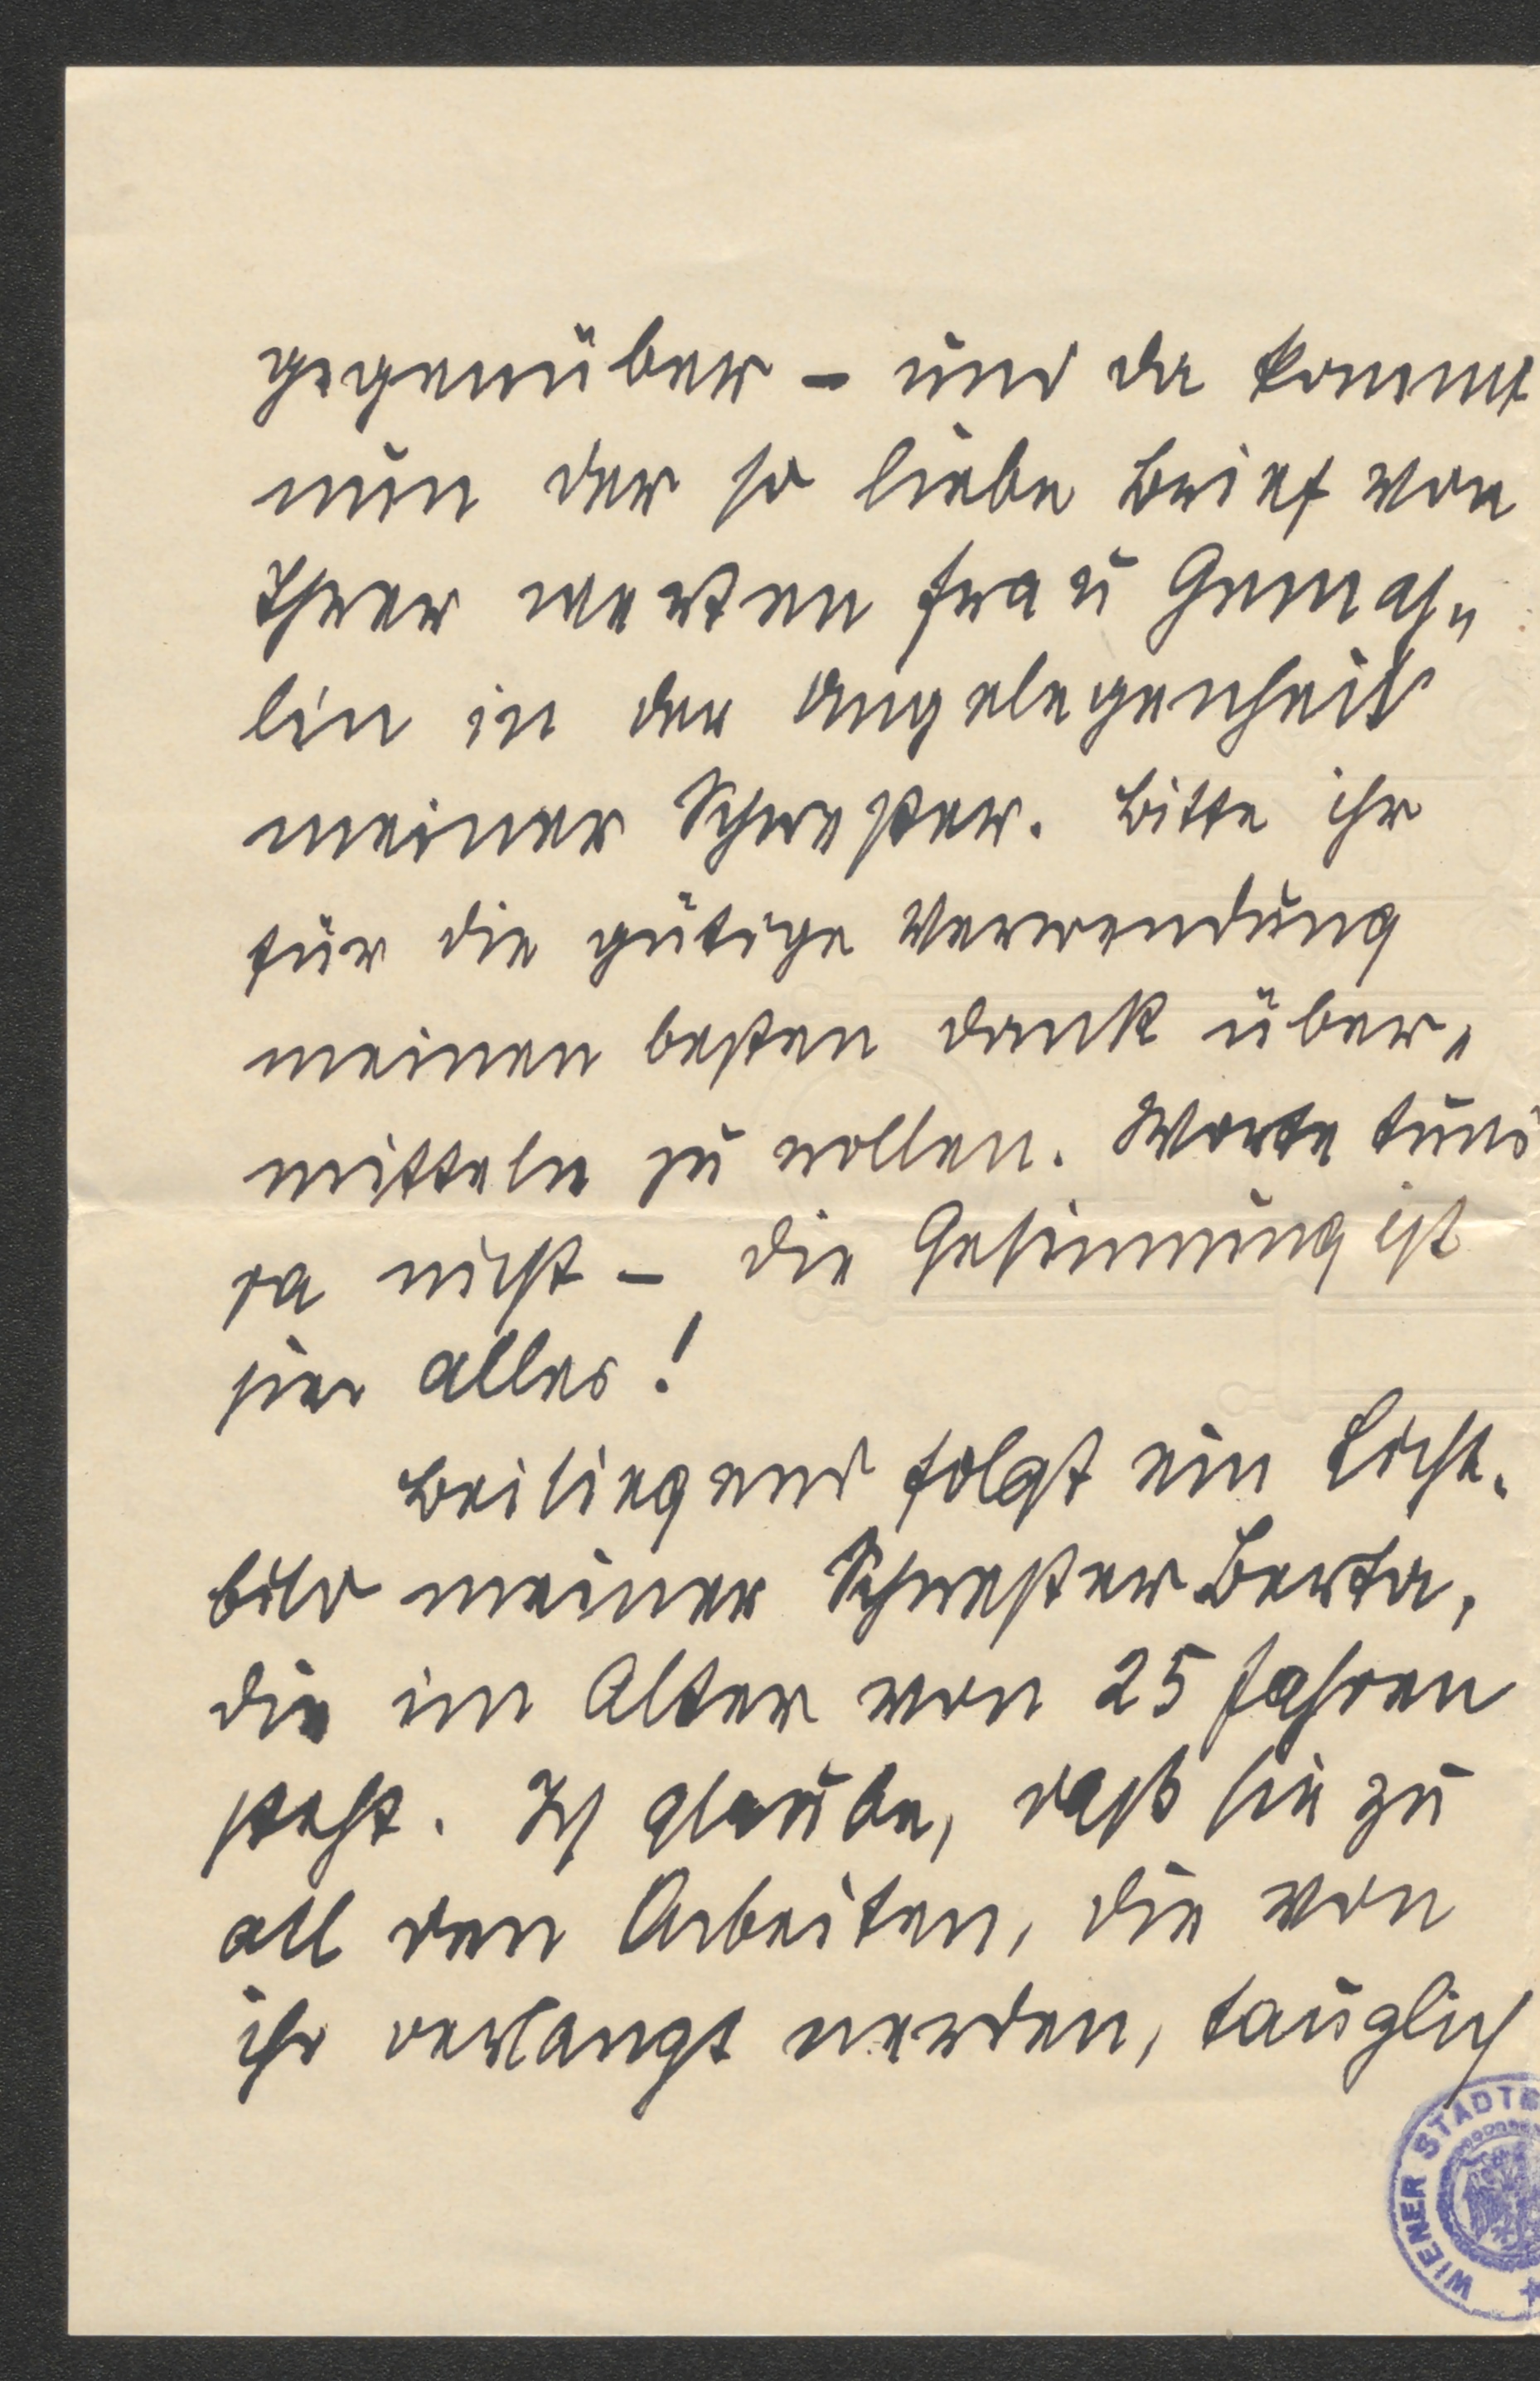 gegenüber – und da kommt
nun der so liebe Brief von
Ihrer werten Frau Gemah„
lin in der Angelegenheit
meiner Schwester. Bitte ihr
für die gütige Verwendung
meinen besten Dank über„
mitteln zu wollen. Worte tuns
ja nicht – die Gesinnung ist
hier alles!
Beiliegend folgt ein Licht„
bild meiner Schwester Berta,
die im Alter von 25 Jahren
steht. Ich glaube, daß sie zu
all den Arbeiten, die von
ihr verlangt werden, tauglich
WIENER STADT